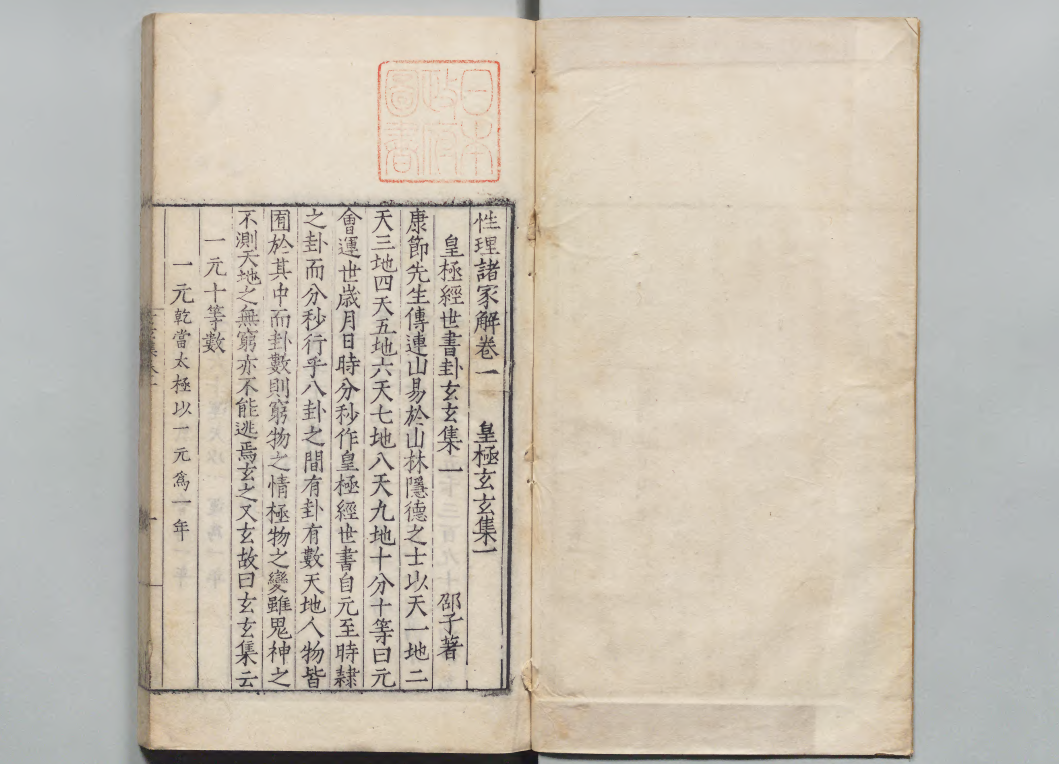 日本
政府
圖書
性理諸家解卷一 皇極玄玄集一
皇極經世書卦玄玄集一 邵子著
康節先生傳連山易於山林隱德之士以天一地二
天三地四天五地六天七地八天九地十分十等曰元
會運世歲月日時分秒作皇極經世書自元至時隸
之卦而分秒行乎八卦之間有卦有數天地人物皆
囿於其中而卦數則窮物之情極物之變雖鬼神之
不測天地之無窮亦不能逃焉玄之又玄故曰玄玄集云
一元十等數
一元乾當太極以一元爲一年